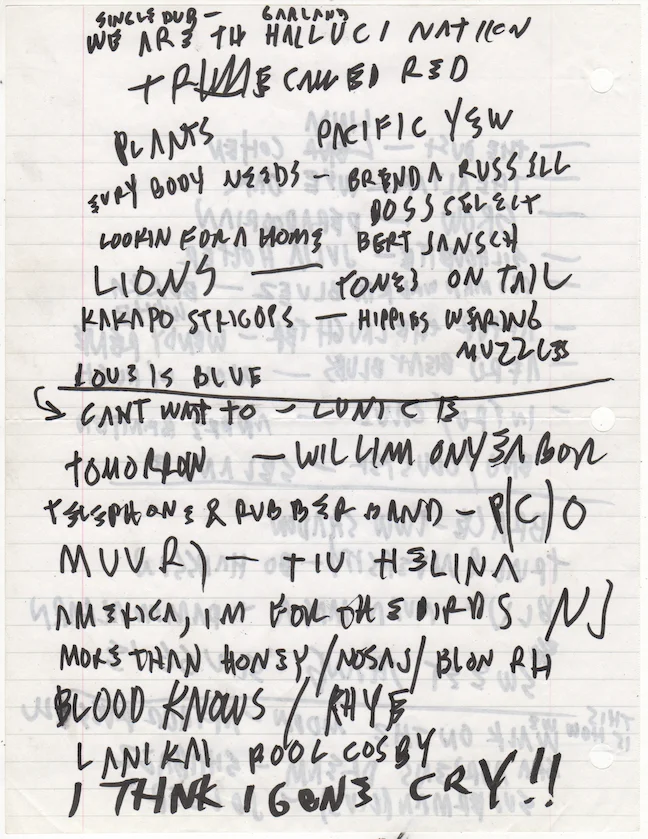 SINGLE DUB - GARLAND
WE ARE TH HALLUCI NATION
TRIBE CALLED RED
PLANTS PACIFIC YEW
EVRY BODY NEEDS - BRENDA RUSSELL
BOSS SELECT
LOOKIN FOR A HOME BERT JANSCH
LIONS — TONES ON TAIL
KAKAPO STRIGOPS - HIPPIES WEARING
MUZZLES
LOVE IS BLUE
CANT WAIT TO -
TOMORROW - WILLIAM ONYEABOR
TELEPHONE & RUBBER BAND - P/C/O
MUUR) - TIU HELINA
AMERICA, IM FOR THE BIRDS NJ
MORE THAN HONEY / NOSAJ / BLON RH
BLOOD KNOWS / RHYE
LANIKAI POOL COSBY
I THINK I GONE CRY!!